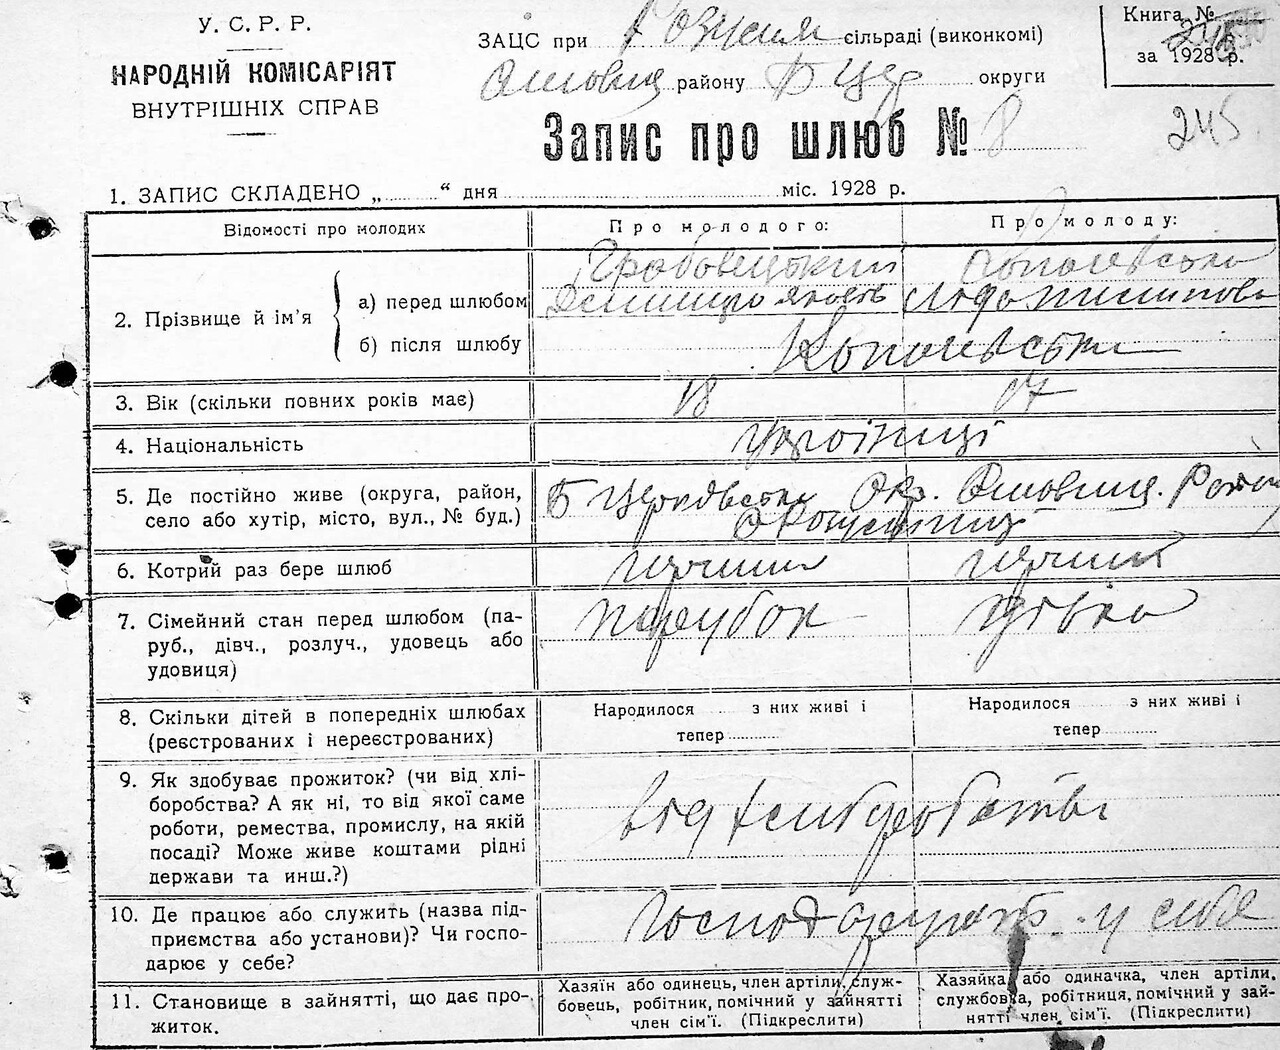 У. С. Р. Р.
НАРОДНІЙ КОМІСАРІЯТ
ВНУТРІШНІХ СПРАВ
ЗАЦС при сільраді (виконкомі)
району Б Цер округи
Книга №
за 1928 р.
245
Запис про шлюб № 8
1. ЗАПИС СКЛАДЕНО „ “ дня міс. 1928 р.
Відомості про молодих Про молодого: Про молоду:
2. Прізвище й ім’я
а) перед шлюбом
Грабовецький
б) після шлюбу
3. Вік (скільки повних років має) 18 17
4. Національність українці
5. Де постійно живе (округа, район,
село або хутір, місто, вул., № буд.)
Б Церківська Окр.
6. Котрий раз бере шлюб перший перший
7. Сімейний стан перед шлюбом (па-
руб., дівч., розлуч., удовець або
удовиця)
парубок дівка
8. Скільки дітей в попередніх шлюбах
(реєстрованих і нереєстрованих)
Народилося з них живі і
тепер
Народилося з них живі і
тепер
9. Як здобуває прожиток? (чи від хлі-
боробства? А як ні, то від якої саме
роботи, ремества, промислу, на якій
посаді? Може живе коштами рідні
держави та инш.?)
від хліборобства
10. Де працює або служить (назва під-
приємства або установи)? Чи госпо-
дарює у себе?
у себе
11. Становище в зайнятті, що дає про-
житок.
Хазяїн або одинець, член артіли, служ-
бовець, робітник, помічний у зайнятті
член сім’ї. (Підкреслити)
Хазяйка або одиначка, член артіли,
службовка, робітниця, помічний у зай-
нятті член сім’ї. (Підкреслити)